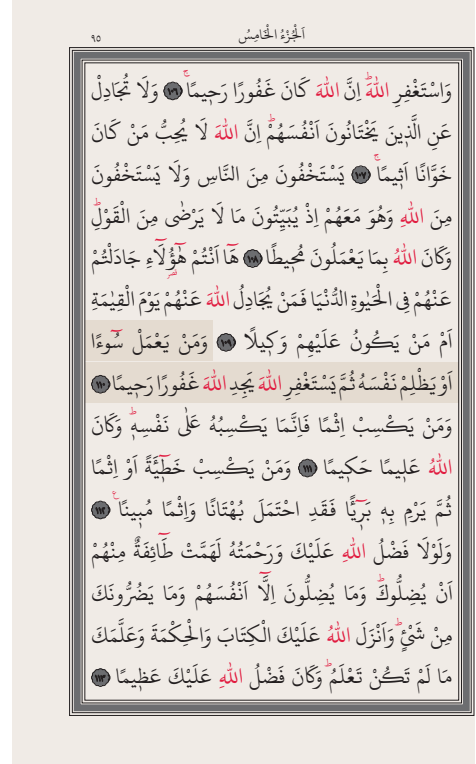 اَلْجُزْءُ الْخَامِسُ ٩٥
وَاسْتَغْفِرِ اللّٰهَۜ اِنَّ اللّٰهَ كَانَ غَفُورًا رَح۪يمًاۚ ﴿١٠٦﴾ وَلَا تُجَادِلْ
عَنِ الَّذ۪ينَ يَخْتَانُونَ اَنْفُسَهُمْۜ اِنَّ اللّٰهَ لَا يُحِبُّ مَنْ كَانَ
خَوَّانًا اَث۪يمًاۚ ﴿١٠٧﴾ يَسْتَخْفُونَ مِنَ النَّاسِ وَلَا يَسْتَخْفُونَ
مِنَ اللّٰهِ وَهُوَ مَعَهُمْ اِذْ يُبَيِّتُونَ مَا لَا يَرْضٰى مِنَ الْقَوْلِۜ
وَكَانَ اللّٰهُ بِمَا يَعْمَلُونَ مُح۪يطًا ﴿١٠٨﴾ هَٓا اَنْتُمْ هٰٓؤُ۬لَٓاءِ جَادَلْتُمْ
عَنْهُمْ فِي الْحَيٰوةِ الدُّنْيَا فَمَنْ يُجَادِلُ اللّٰهَ عَنْهُمْ يَوْمَ الْقِيٰمَةِ
اَمْ مَنْ يَكُونُ عَلَيْهِمْ وَك۪يلًا ﴿١٠٩﴾ وَمَنْ يَعْمَلْ سُٓوءًا
اَوْ يَظْلِمْ نَفْسَهُ ثُمَّ يَسْتَغْفِرِ اللّٰهَ يَجِدِ اللّٰهَ غَفُورًا رَح۪يمًا ﴿١١٠﴾
وَمَنْ يَكْسِبْ اِثْمًا فَاِنَّمَا يَكْسِبُهُ عَلٰى نَفْسِه۪ۜ وَكَانَ
اللّٰهُ عَل۪يمًا حَك۪يمًا ﴿١١١﴾ وَمَنْ يَكْسِبْ خَط۪ٓيـَٔةً اَوْ اِثْمًا
ثُمَّ يَرْمِ بِه۪ بَر۪ٓيـًٔا فَقَدِ احْتَمَلَ بُهْتَانًا وَاِثْمًا مُب۪ينًا۟ ﴿١١٢﴾
وَلَوْلَا فَضْلُ اللّٰهِ عَلَيْكَ وَرَحْمَتُهُ لَهَمَّتْ طَٓائِفَةٌ مِنْهُمْ
اَنْ يُضِلُّوكَۜ وَمَا يُضِلُّونَ اِلَّٓا اَنْفُسَهُمْ وَمَا يَضُرُّونَكَ
مِنْ شَيْءٍۜ وَاَنْزَلَ اللّٰهُ عَلَيْكَ الْكِتَابَ وَالْحِكْمَةَ وَعَلَّمَكَ
مَا لَمْ تَكُنْ تَعْلَمُۜ وَكَانَ فَضْلُ اللّٰهِ عَلَيْكَ عَظ۪يمًا ﴿١١٣﴾